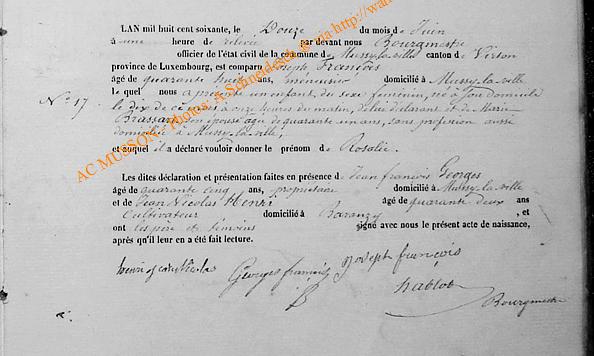 LAN mil huit cent soixante, le Douze du mois de Juin
à une heure de relevée par devant nous Bourgmestre
officier de l'état civil de la commune de Mussy-la-ville canton de Virton
province de Luxembourg, est comparu Joseph François
âgé de quarante huit ans, menuisier domicilié à Mussy-la-ville
le quel nous a présenté un enfant, du sexe féminin, né à son domicile
N° 17. le dix de ce mois à onze heures du matin, de lui déclarant et de Marie
Brassart son épouse agée de quarante un ans, sans profession aussi
domiciliée à Mussy-la-ville,
et auquel il a déclaré vouloir donner le prénom de Rosalie.
Les dites déclaration et présentation faites en présence de Jean françois Georges
âgé de quarante cinq ans, propriétaire domicilié à Mussy-la-ville
et de Jean Nicolas Henri âgé de quarante deux ans
Cultivateur domicilié à Baranzy, et
ont les père et témoins signé avec nous le présent acte de naissance,
après qu'il leur en a été fait lecture.
henri jean Nicolas Georges françois Joseph françois
Bourgmestre
AC MUSSON. Photos: A. Schneidesch @ via http://www